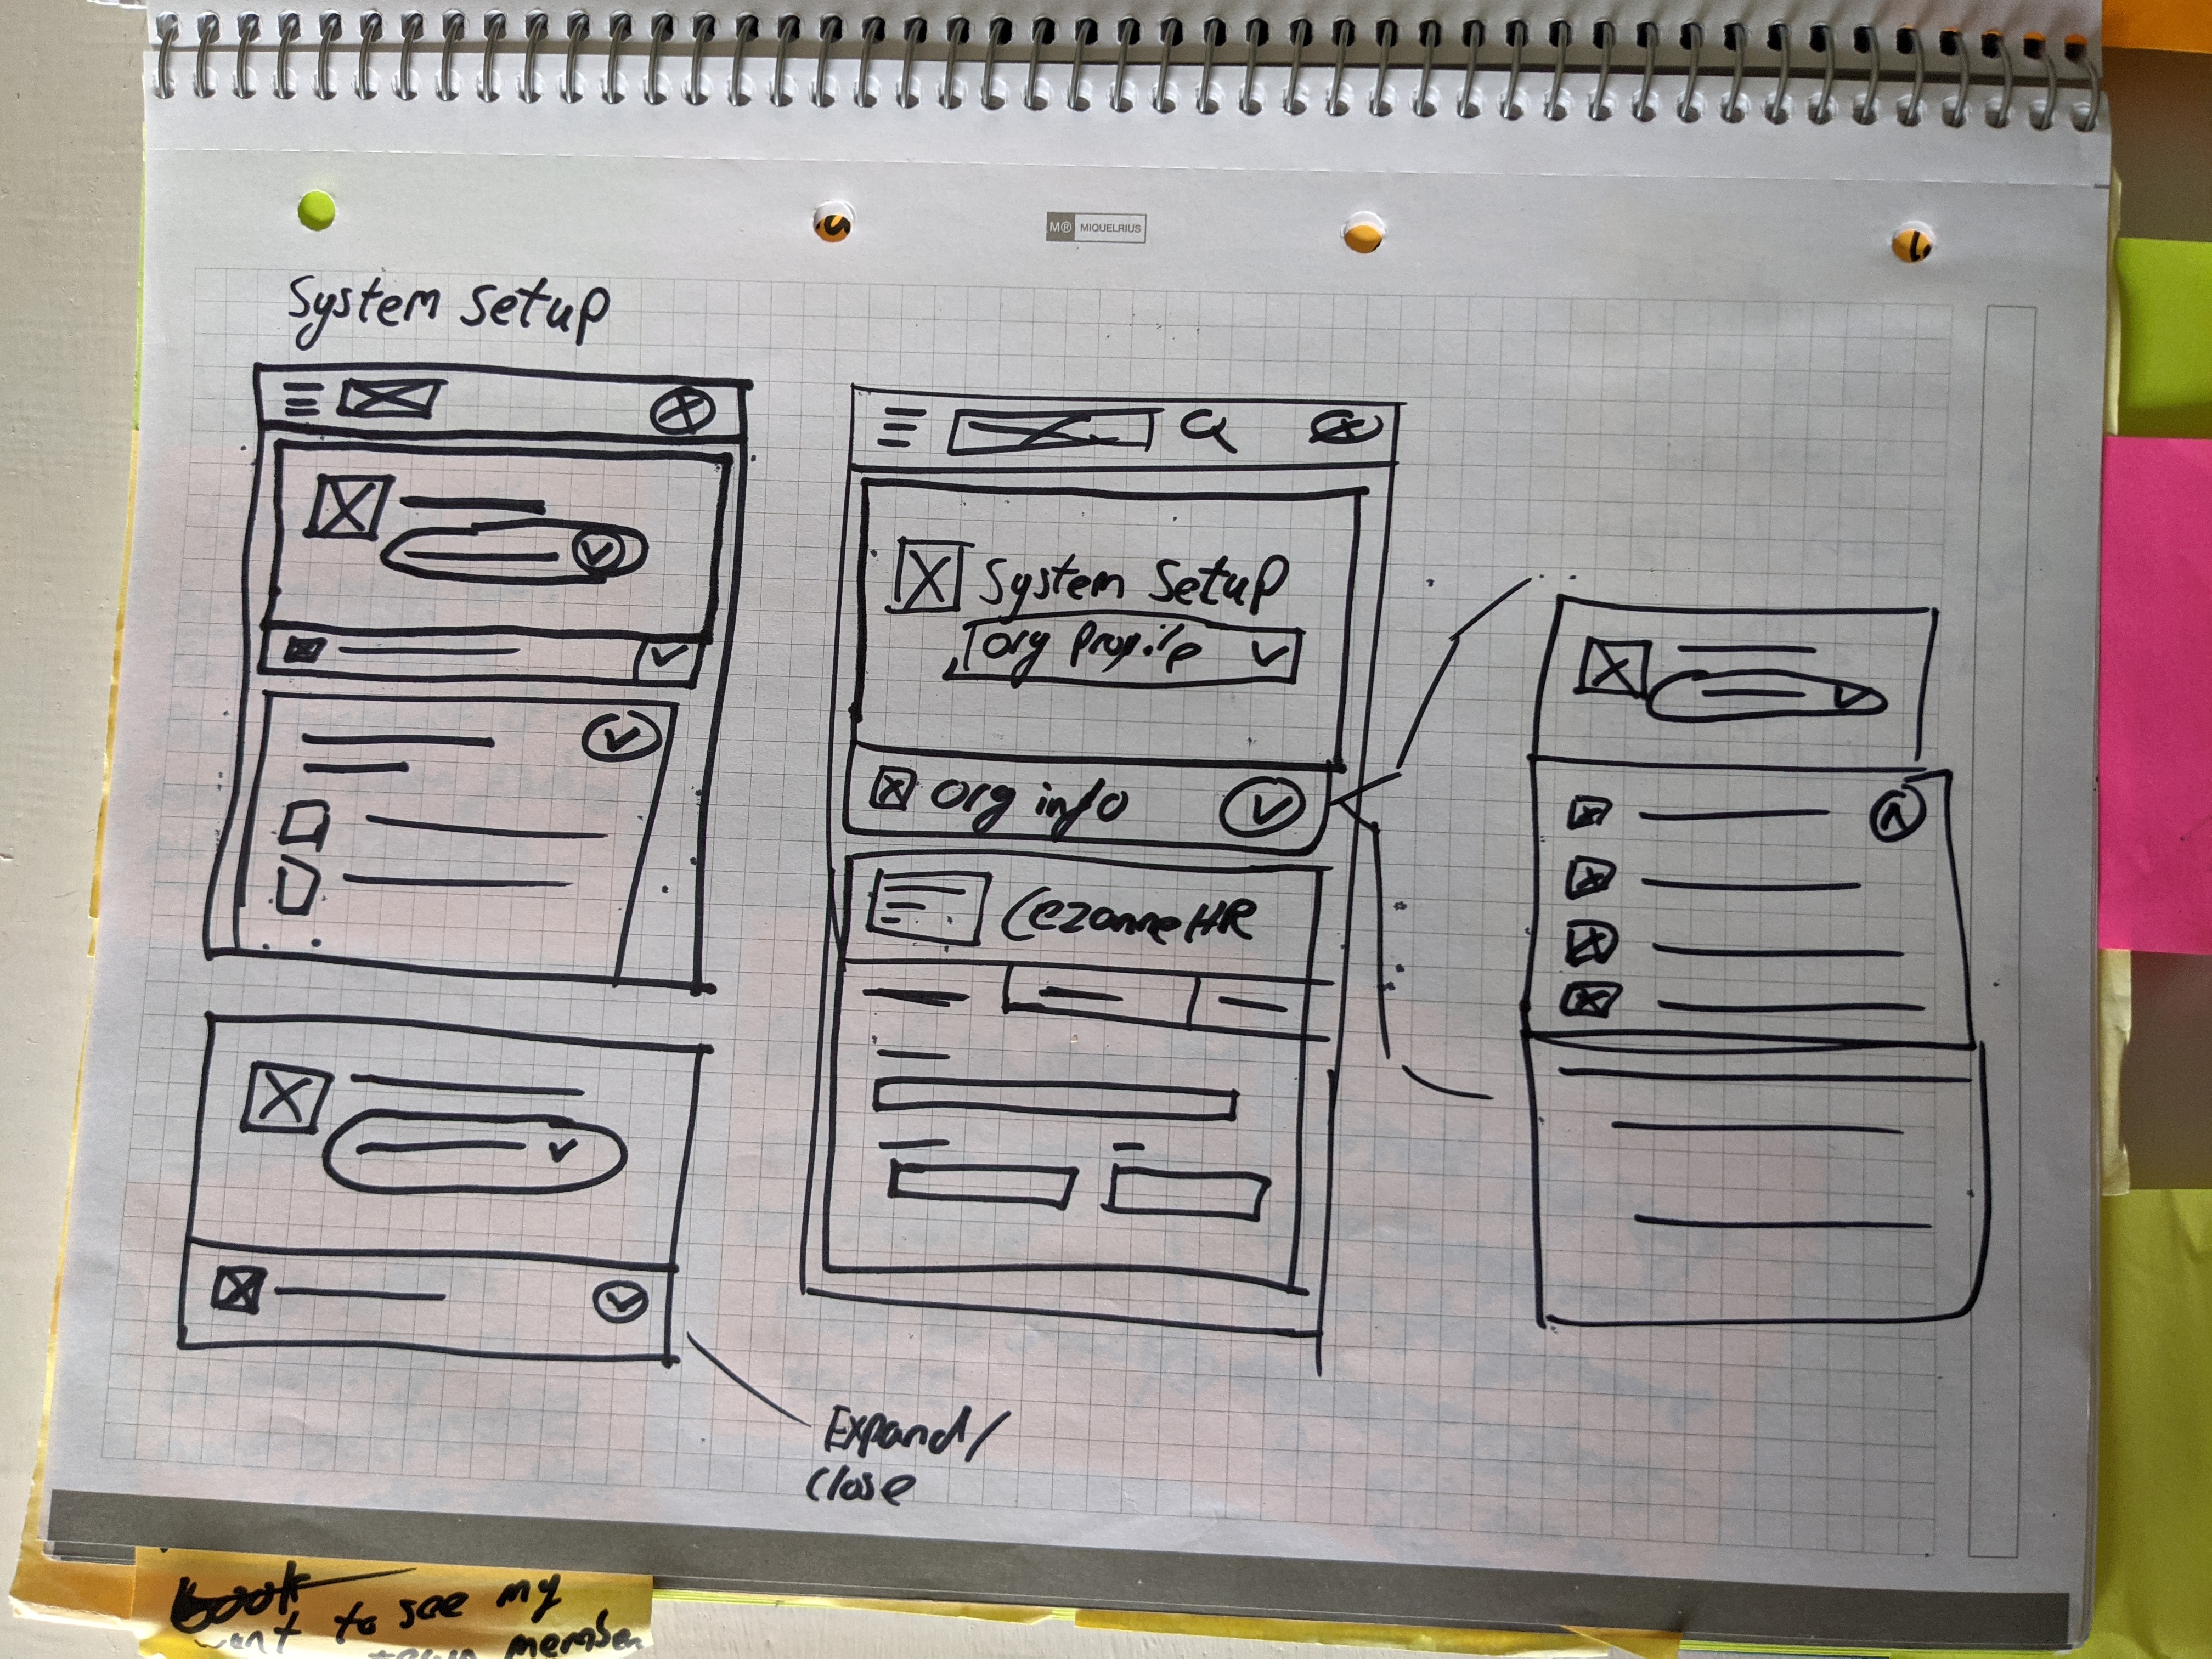 M® MIQUELRIUS
System Setup
System Setup
Org Profile
Org info
CezanneHR
Expand/
Close
book
want to see my
team member